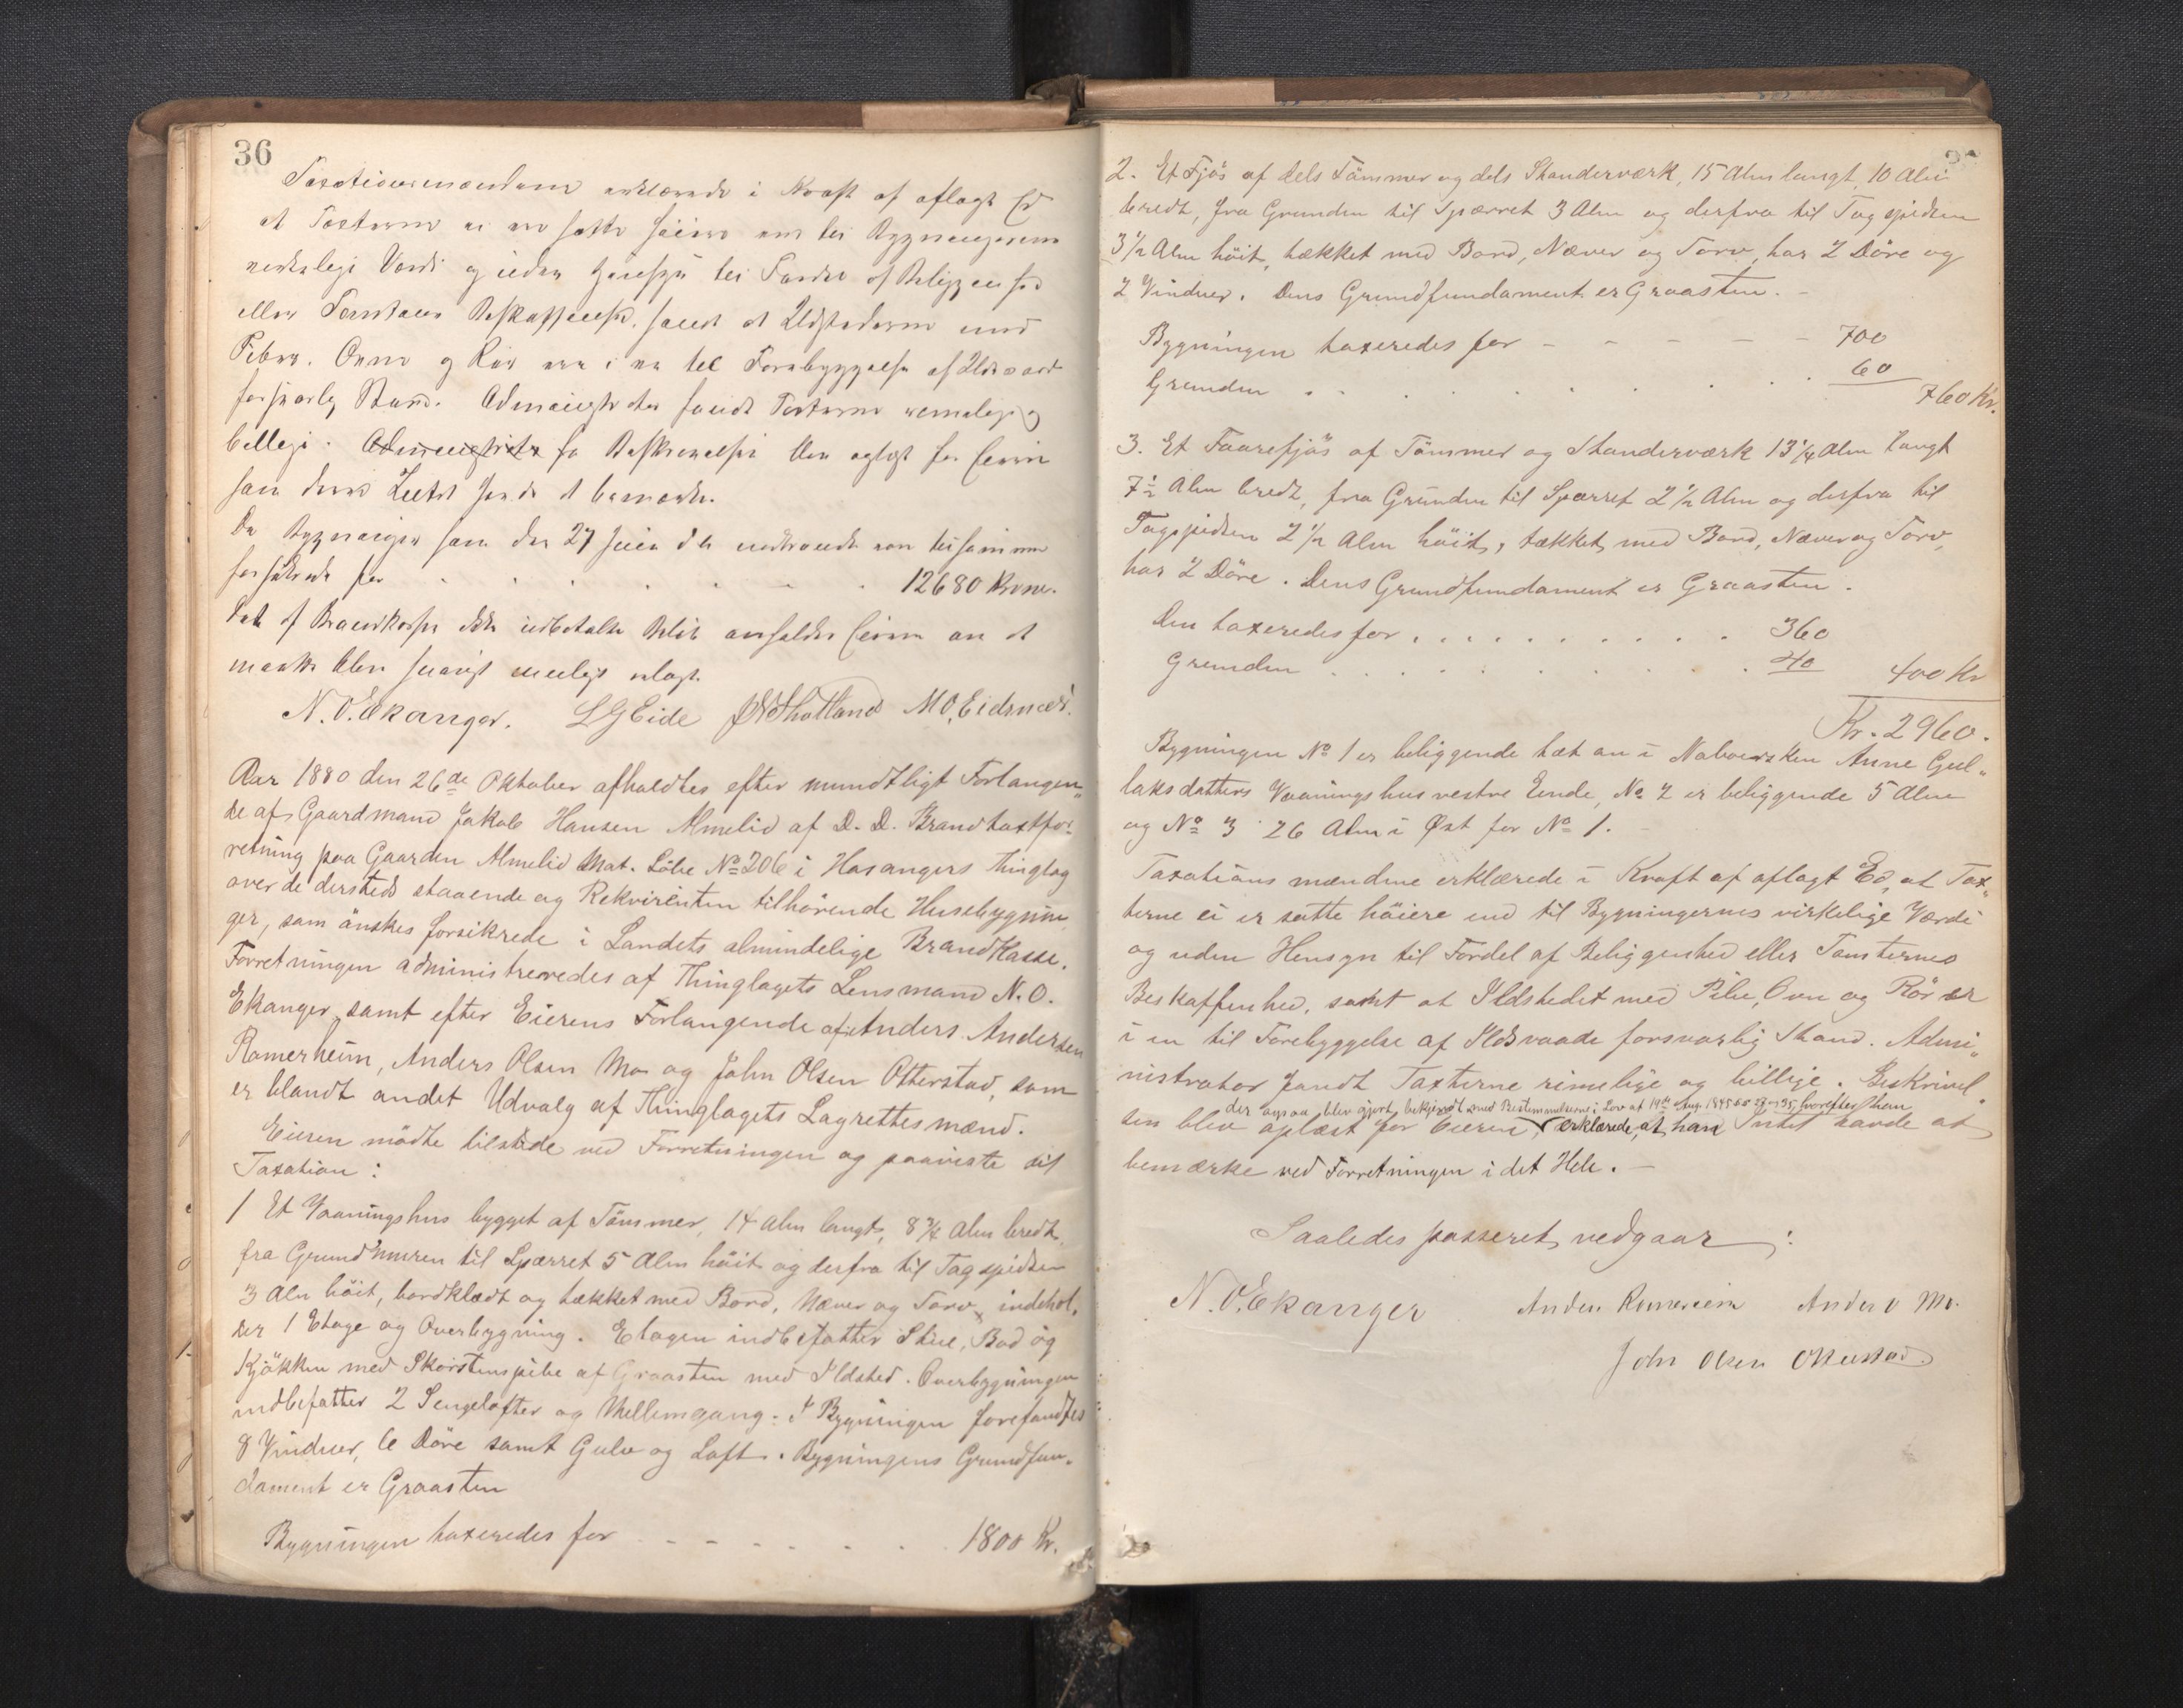 36
Taxationsmændene erklærede i Kraft af aflagt Ed
at Taxterne ei ere satte høiere end til Bygningernes
virkelige Værdi og uden Hensyn til Fordel af Beliggenhed
eller Tomtens Beskaffenhed, samt at Ildstederne med
Piber, Ovne og Rør ere i en til Forebyggelse af Ildsvaade
forsvarlig Stand. Administrator fandt Taxterne rimelige og
billige. Administrator Beskrivelsen blev oplæst for Eieren
som dertil Intet havde at bemærke.
Da Bygningen som den 27 Juni nedbrændte var tilsammen
forsikrede for . . . . . . . 12680 Kroner.
af Brandkassen udbetalte Beløb anholder Eieren om at
maatte blive snarest muligt
N. O. Ekanger. LGEide Hhotland M O. Eidsnæs.
Aar 1880 den 26de Oktober afholdtes efter mundtligt Forlangen„
de af Gaardmand Jakob Hansen Almelid af D. D. Brandtaxtfor„
retning paa Gaarden Almelid Mat. Løbe No 206 i Hosangers Thinglag
over de dersteds staaende og Rekvirenten tilhørende Husebygnin„
ger, som ønskes forsikrede i Landets almindelige BrandKasse.
Forretningen administreredes af Thinglagets Lensmand N. O.
Ekanger, samt efter Eierens Forlangende af Anders Andersen
Romerheim, Anders Olsen Mo og John Olsen Otterstad, som
er blandt andet Udvalg af Thinglagets Lagrettesmænd.
Eieren mødte tilstede ved Forretningen og paaviste til
Taxation:
1 Et Vaaningshus bygget af Tømmer, 14 Alen langt, 8 3/4 Alen bredt,
fra Grundmuren til Spærret 5 Alen høit og derfra til Tagspidsen
3 Alen høit, bordklædt og tækket med Bord, Næver og Torv, indehol„
der 1 Etage og Overbygning. Etagen indbefatter Stue, Bod og
Kjøkken med Skorstenspibe af Graasten med Ildsted. Overbygningen
indbefatter 2 Sengelofter og Mellemgang. I Bygningen forefandtes
8 Vinduer, 6 Døre samt Gulv og Loft. Bygningens Grundfun„
dament er Graasten
Bygningen taxeredes for - - - - - - - 1800 Kr.
2. Et Fjøs af dels Tømmer og dels Standerværk, 15 Alen langt, 10 Alen
bredt, fra Grunden til Spærret 3 Alen og derfra til Tagspidsen
3 1/2 Alen høit, tækket med Bord, Næver og Torv, har 2 Døre og
2 Vinduer. Dens Grundfundament er Graasten. -
Bygningen taxeredes for - - - - - 700
Grunden . . . . . . . 60 760 Kr.
3. Et Faarefjøs af Tømmer og Standerværk 13 1/4 Alen langt
7 1/2 Alen bredt, fra Grunden til Spærret 2 1/2 Alen og derfra til
Tagspidsen 2 1/2 Alen høit, tækket med Bord, Næver og Torv,
har 2 Døre. Dens Grundfundament er Graasten.
Den taxeredes for . . . . . . . . . 360
Grunden . . . . . . . . . 40 400 Kr
Kr. 2960.
Bygningen No 1 er beliggende tæt an i Naboersken Anne Gul„
laksdatters Vaaningshus vestre Ende, No 2 er beliggende 5 Alen
og No 3 26 Alen i Øst for No 1. -
Taxationsmændene erklærede i Kraft af aflagt Ed, at Tax„
terne ei er satte høiere end til Bygningernes virkelige Værdi
og uden Hensyn til Fordel af Beliggenhed eller Tomternes
Beskaffenhed, samt at Ildstedet med Pibe, Ovn og Rør er
i en til Forebyggelse af Ildsvaade forsvarlig Stand. Admi„
nistrator fandt Taxterne rimelige og billige. Beskrivel„
der ogsaa blev gjort bekjendt med Bestemmelserne i Lov af 19de Aug. 1845 §§ 33-35, hvorefter han
sen blev oplæst for Eieren, erklærede, at han Intet havde at
bemærke ved Forretningen i det Hele. -
Saaledes passeret, vedgaar:
N. O. Ekanger Anders Romereim Anders O Mo.
John Olsen Otterstad.